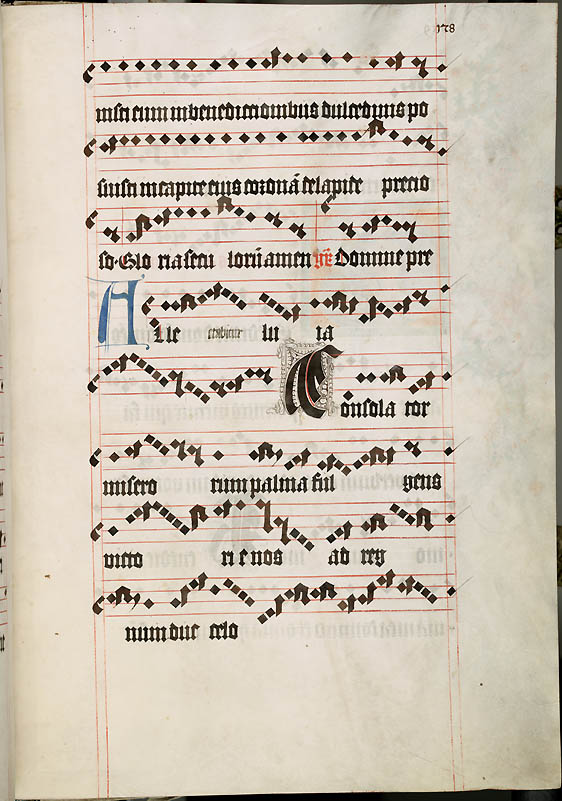 178
nisti eum in benedictionibus dulcedinis po
suisti in capite eius coronā de lapide precio
so. Glo ria secu lorū amen Domine pre
A lle lu ia
Consola tor
misero rum palma ful gens
victo ri e nos ad reg
num duc celo